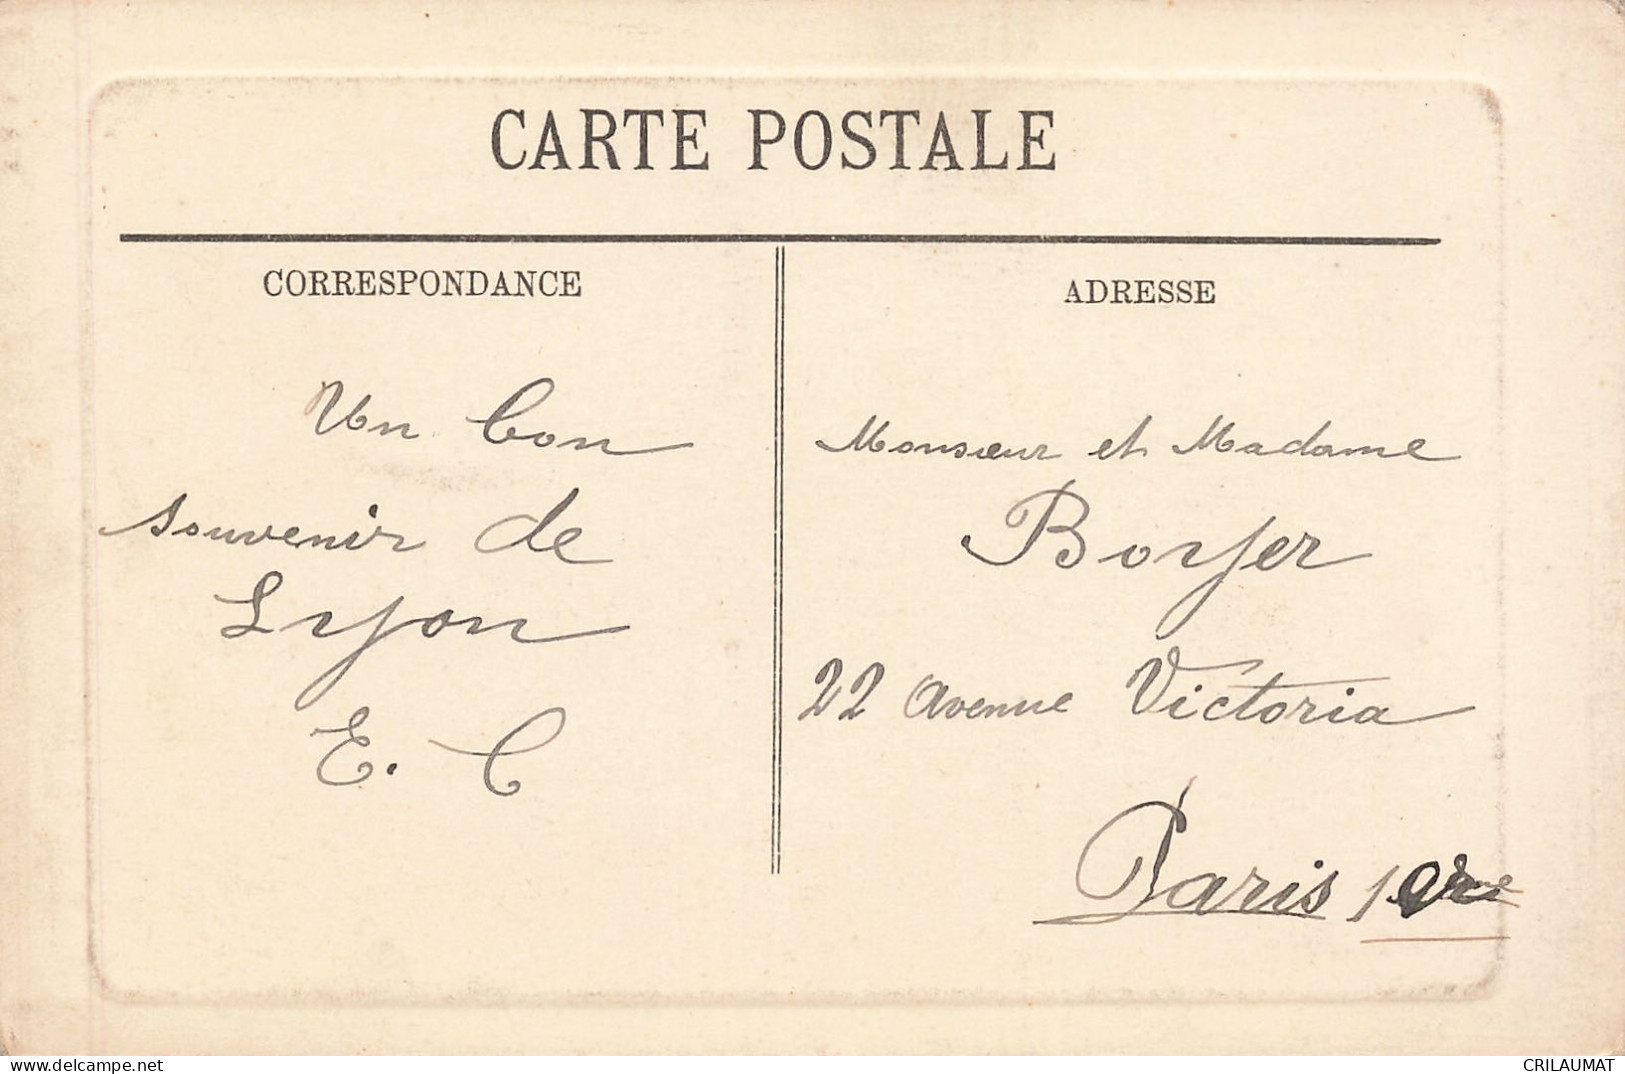 CARTE POSTALE
CORRESPONDANCE
Un bon
souvenir de
Lyon
E. C
ADRESSE
Monsieur et Madame
Boyer
22 Avenue Victoria
Paris 1er
delcampe.net
CRILAUMAT